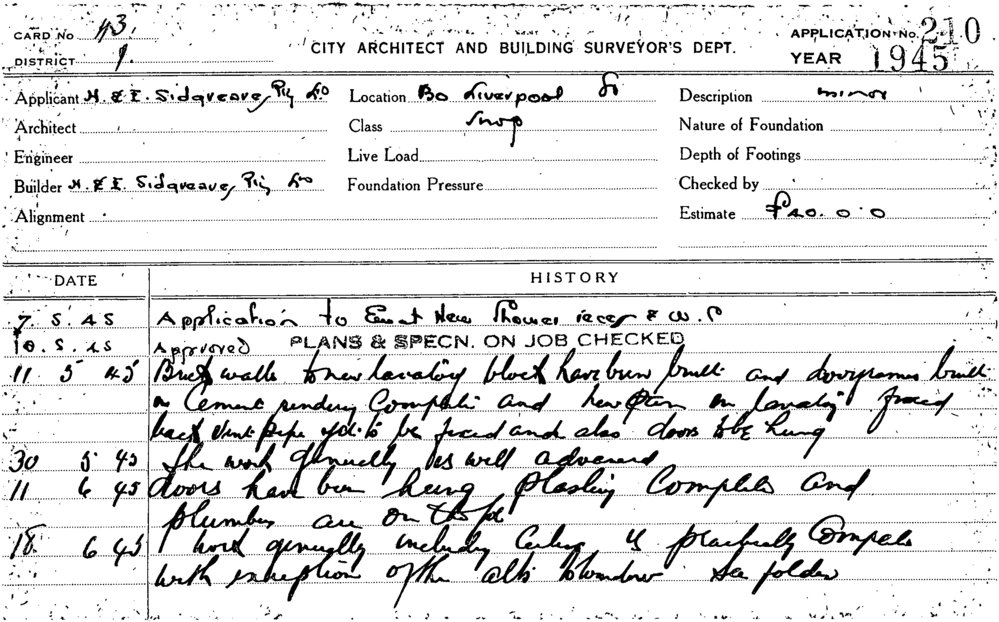 CARD No 113.
CITY ARCHITECT AND BUILDING SURVEYOR'S DEPT.
APPLICATION No. 210
DISTRICT 1.
YEAR 1945
Applicant H. & E. Sidgreaves Pty Ld Location 80 Liverpool St Description minor
Architect Class Shop Nature of Foundation
Engineer Live Load Depth of Footings
Builder H. & E. Sidgreaves Pty Ld Foundation Pressure Checked by
Alignment Estimate £40.0.0
DATE HISTORY
7. 5. 45 Application to Erect New Shower recess & W.C
10. 5. 45 Approved PLANS & SPECN. ON JOB CHECKED
11 5 45 Brick walls to new lavatory block have been built and doorframes built
in Cement rendering Complete and new on lavatory fixed
back Vent pipe yet to be fixed and also doors to be hung
30 5 45 The work generally is well advanced
11 6 45 doors have been hung plastering Complete and
plumbers are on the job
18. 6 45 Work generally including Ceiling is practically Complete
with exception of the alts to window See folder